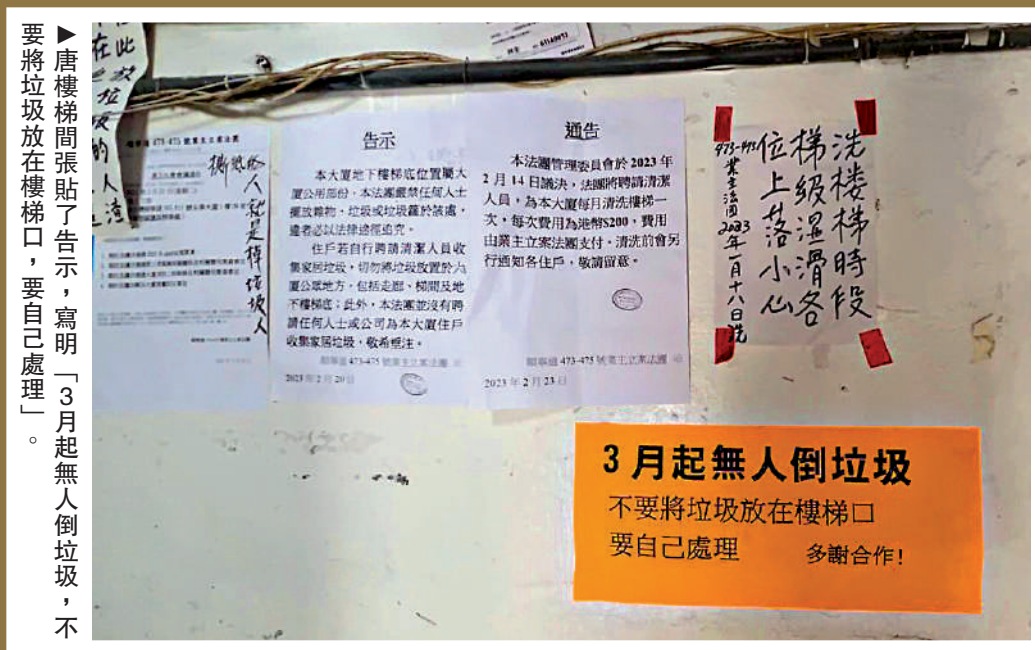 ▶唐樓梯間張貼了告示，寫明「3月起無人倒垃圾，不
要將垃圾放在樓梯口，要自己處理」。
在此
放
垃
圾
的
人
渣
473-475 號業主立案法團
撕
人就是掉垃圾人
告示
本大廈地下樓梯底位置屬大
廈公用部份，本法團嚴禁任何人士
擺放雜物、垃圾或垃圾籮於該處，
違者必以法律途徑追究。
住戶若自行聘請清潔人員收
集家居垃圾，切勿將垃圾放置於大
廈公眾地方，包括走廊、梯間及地
下樓梯底；此外，本法團並沒有聘
請任何人士或公司為本大廈住戶
收集家居垃圾，敬希垂注。
473-475 號業主立案法團
2023 年 2 月 20 日
通告
本法團管理委員會於 2023 年
2 月 14 日議決，法團將聘請清潔
人員，為本大廈每月清洗樓梯一
次，每次費用為港幣$200，費用
由業主立案法團支付。清洗前會另
行通知各住戶，敬請留意。
473-475 號業主立案法團
2023 年 2 月 23 日
洗楼梯時段
梯級濕滑各
位上落小心
473-475業主法团2023年一月十八日洗
3月起無人倒垃圾
不要將垃圾放在樓梯口
要自己處理 多謝合作!